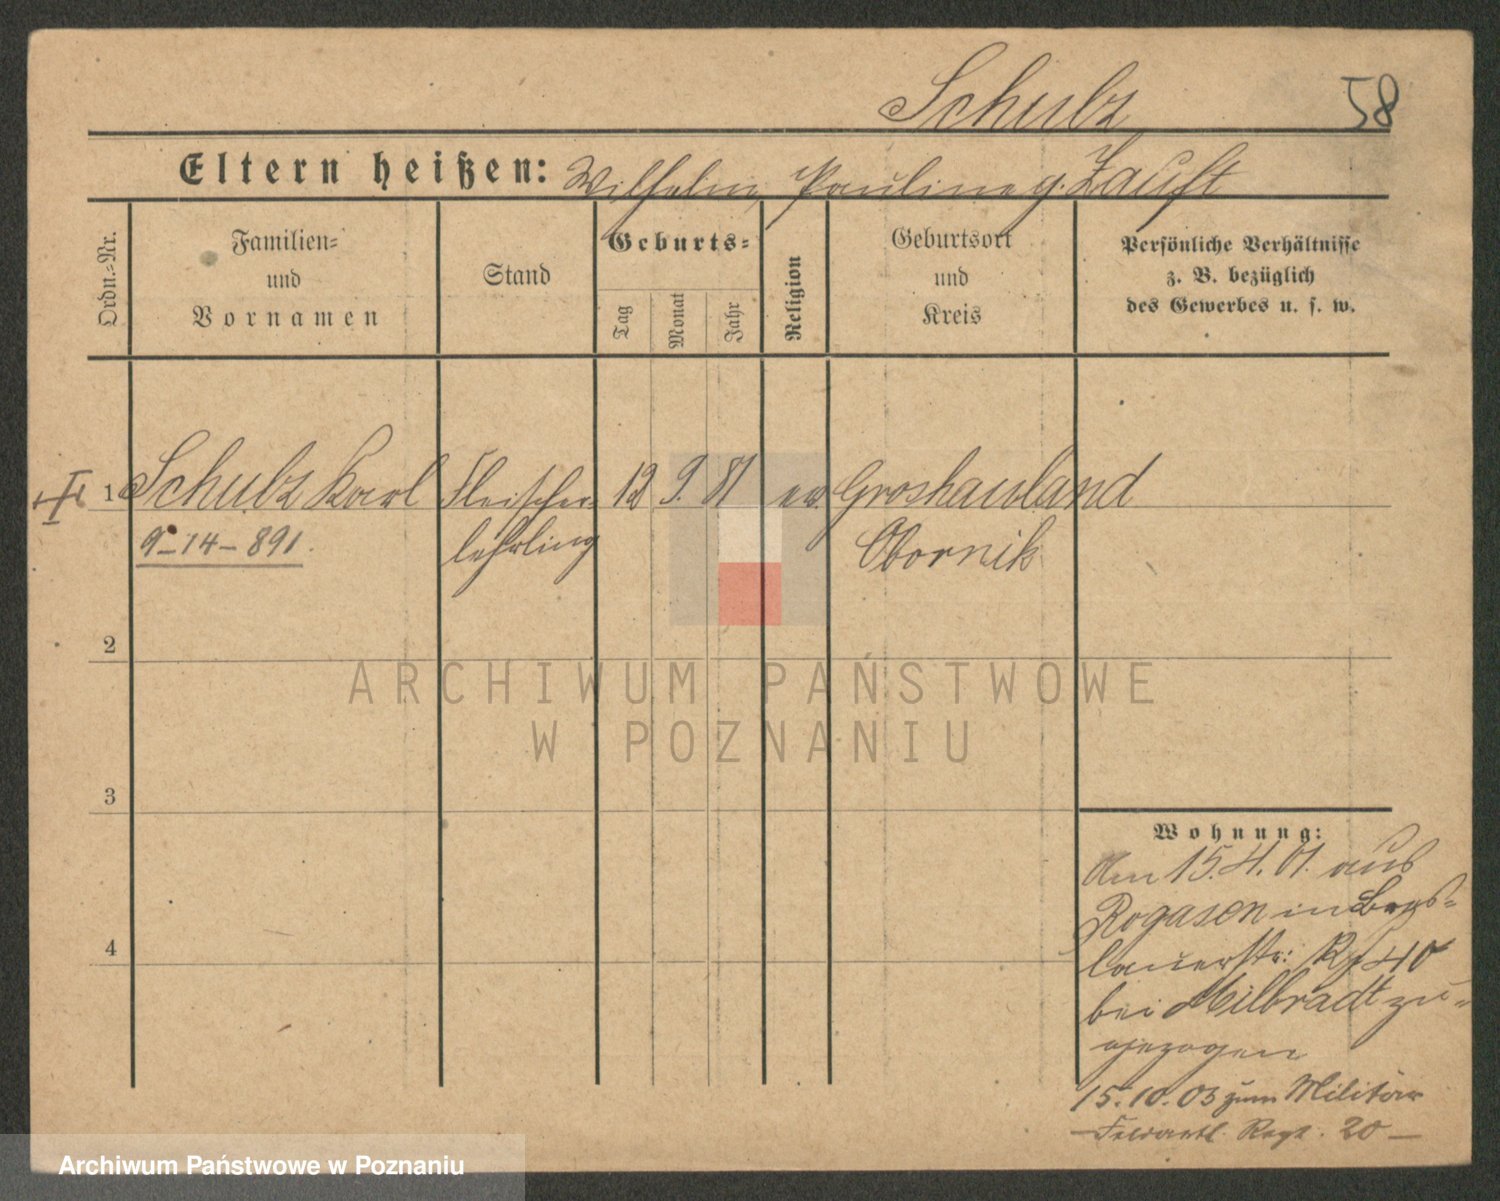 Schulz
58
Eltern heißen: Wilhelm, Pauline g. Zauft
Ordn.-Nr.
Familien-
und
Vornamen
Stand
Geburts-
Tag
Monat
Jahr
Religion
Geburtsort
und
Kreis
Persönliche Verhältnisse
z. B. bezüglich
des Gewerbes u. s. w.
I
1 Schulz Karl Fleischer- 12 9. 81 ev. Groshauland
9-14-891. lehrling Obornik
2
3
4
Wohnung:
Am 15.4.01. aus
Rogasen in Bres-
lauerstr: 40
bei Milbradt zu-
gezogen
15.10.03 zum Militär
Feldartl. Regt. 20 -
ARCHIWUM PAŃSTWOWE
W POZNANIU
Archiwum Państwowe w Poznaniu